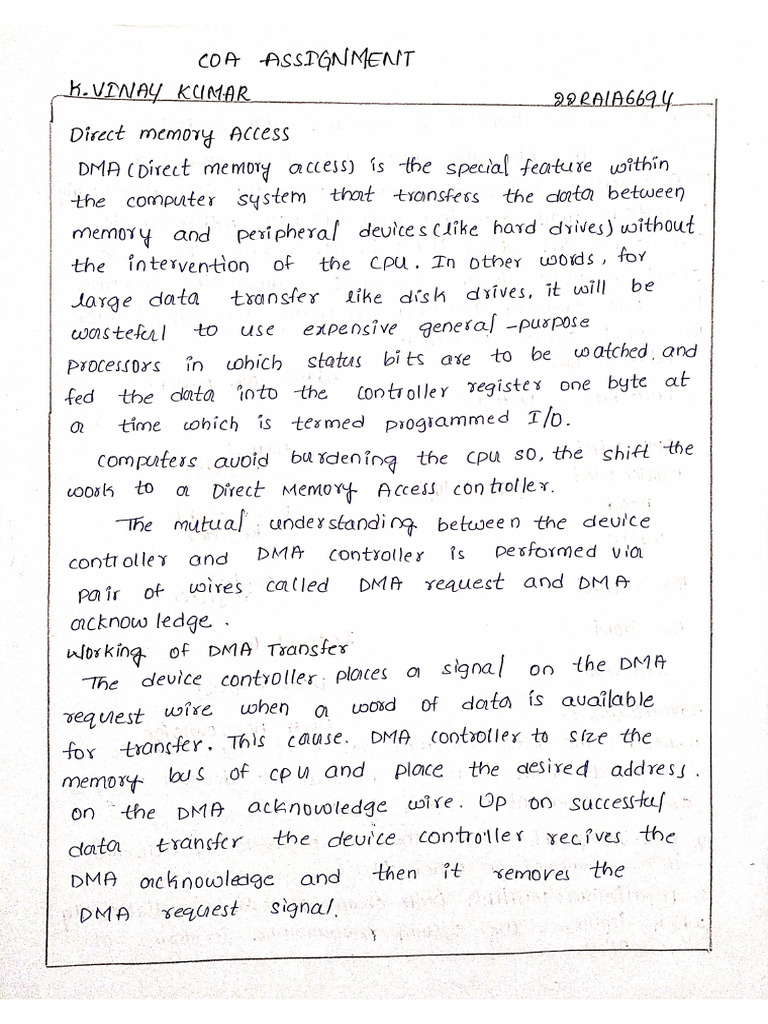 COA ASSIGNMENT
K.VINAY KUMAR 22RA1A6694
Direct memory Access
DMA (Direct memory access) is the special feature within
the computer system that transfers the data between
memory and peripheral devices (like hard drives) without
the intervention of the CPU. In other words, for
large data transfer like disk drives, it will be
wasteful to use expensive general-purpose
processors in which status bits are to be watched and
fed the data into the controller register one byte at
a time which is termed programmed I/O.
computers avoid burdening the CPU so, the shift the
work to a Direct Memory Access controller.
The mutual understanding between the device
controller and DMA controller is performed via
pair of wires called DMA request and DMA
acknowledge.
Working of DMA Transfer
The device controller places a signal on the DMA
request wire when a word of data is available
for transfer. This cause. DMA controller to size the
memory bus of CPU and place the desired address.
on the DMA acknowledge wire. Up on successful
data transfer the device controller recives the
DMA acknowledge and then it removes the
DMA request signal.